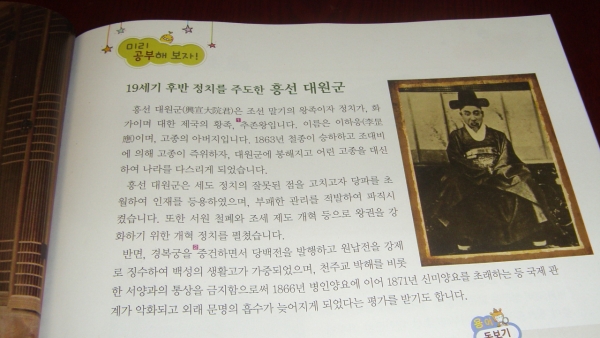 미리
공부해 보자!
19세기 후반 정치를 주도한 흥선 대원군
흥선 대원군(興宣大院君)은 조선 말기의 왕족이자 정치가, 화
가이며 대한 제국의 황족, 추존왕입니다. 이름은 이하응(李昰
應)이며, 고종의 아버지입니다. 1863년 철종이 승하하고 조대비
에 의해 고종이 즉위하자, 대원군에 봉해지고 어린 고종을 대신
하여 나라를 다스리게 되었습니다.
흥선 대원군은 세도 정치의 잘못된 점을 고치고자 당파를 초
월하여 인재를 등용하였으며, 부패한 관리를 적발하여 파직시
켰습니다. 또한 서원 철폐와 조세 제도 개혁 등으로 왕권을 강
화하기 위한 개혁 정치를 펼쳤습니다.
반면, 경복궁을 중건하면서 당백전을 발행하고 원납전을 강제
로 징수하여 백성의 생활고가 가중되었으며, 천주교 박해를 비롯
한 서양과의 통상을 금지함으로써 1866년 병인양요에 이어 1871년 신미양요를 초래하는 등 국제 관
계가 악화되고 외래 문명의 흡수가 늦어지게 되었다는 평가를 받기도 합니다.
돋보기